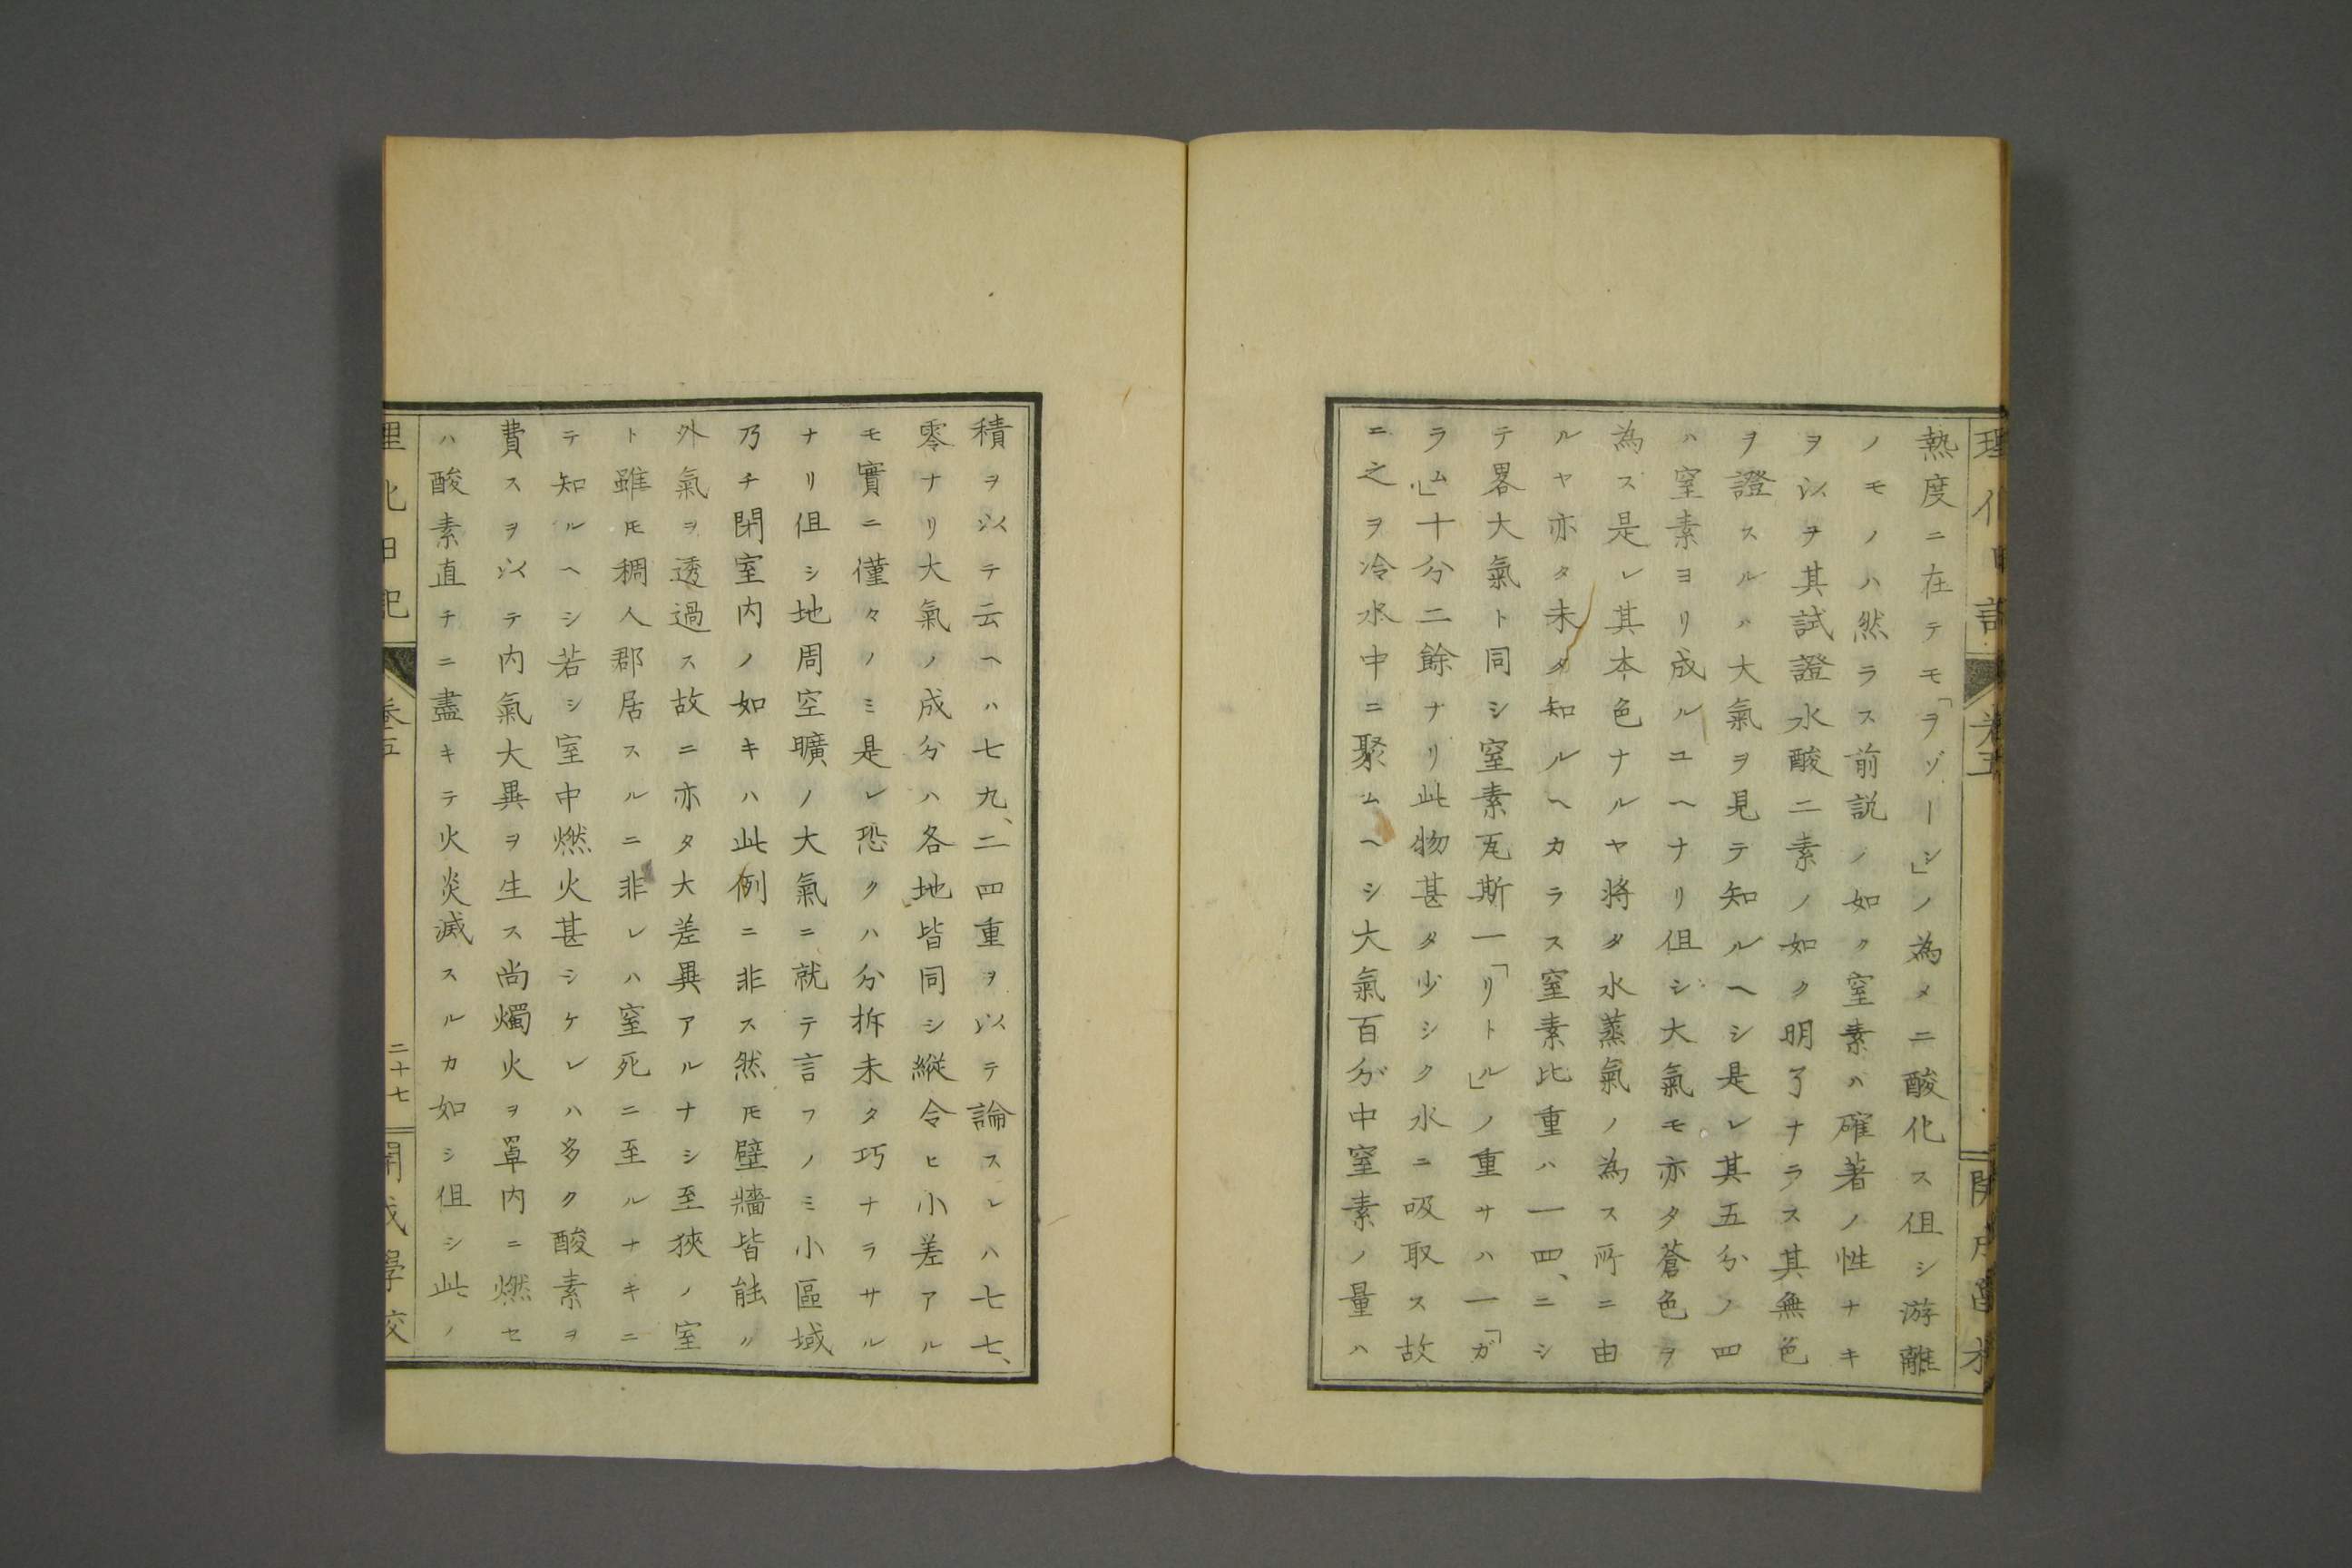 熱度ニ在テモ「ヲゾーン」ノ為メニ酸化ス但シ游離
ノモノハ然ラス前説ノ如ク窒素ハ確著ノ性ナキ
ヲ以ヲ其試證水酸二素ノ如ク明了ナラス其無色
ヲ證スルハ大氣ヲ見テ知ルヘシ是レ其五分ノ四
ハ窒素ヨリ成ルユヘナリ但シ大氣モ亦タ蒼色ヲ
為ス是レ其本色ナルヤ将タ水蒸氣ノ為ス所ニ由
ルヤ亦タ未タ知ルヘカラス窒素比重ハ一四、ニシ
テ畧大氣ト同シ窒素瓦斯一「リトル」ノ重サハ一「ガ
ラム」十分二餘ナリ此物甚タ少シク水ニ吸取ス故
ニ之ヲ冷水中ニ聚ムヘシ大氣百分中窒素ノ量ハ
積ヲ以テ云ヘハ七九、二四重ヲ以テ論スレハ七七、
零ナリ大氣ノ成分ハ各地皆同シ縱令ヒ小差アル
モ實ニ僅々ノミ是レ恐クハ分拆未タ巧ナラサル
ナリ但シ地周空曠ノ大氣ニ就テ言フノミ小區域
乃チ閉室内ノ如キハ此例ニ非ス然𪜈壁牆皆能ク
外氣ヲ透過ス故ニ亦タ大差異アルナシ至狹ノ室
ト雖𪜈稠人郡居スルニ非レハ窒死ニ至ルナキニ
テ知ルヘシ若シ室中燃火甚シケレハ多ク酸素ヲ
費スヲ以テ内氣大異ヲ生ス尚燭火ヲ罩内ニ燃セ
ハ酸素直チニ盡キテ火炎滅スルカ如シ但シ此ノ
理化日記
卷五
二十七
開成學校